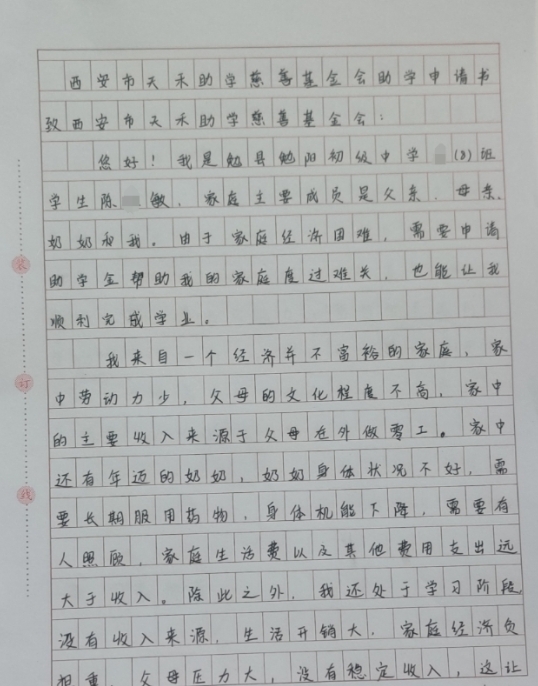 西安市天禾助学慈善基金会助学申请书
致西安市天禾助学慈善基金会：
您好！我是勉县勉阳初级中学 (8)班
学生陈 敏，家庭主要成员是父亲、母亲、
奶奶和我。由于家庭经济困难，需要申请
助学金帮助我的家庭度过难关，也能让我
顺利完成学业。
我来自一个经济并不富裕的家庭，家
中劳动力少，父母的文化程度不高，家中
的主要收入来源于父母在外做零工。家中
还有年迈的奶奶，奶奶身体状况不好，需
要长期服用药物，身体机能下降，需要有
人照顾，家庭生活费以及其他费用支出远
大于收入。除此之外，我还处于学习阶段
没有收入来源，生活开销大，家庭经济负
担重，父母压力大，没有稳定收入，这让
装
订
线